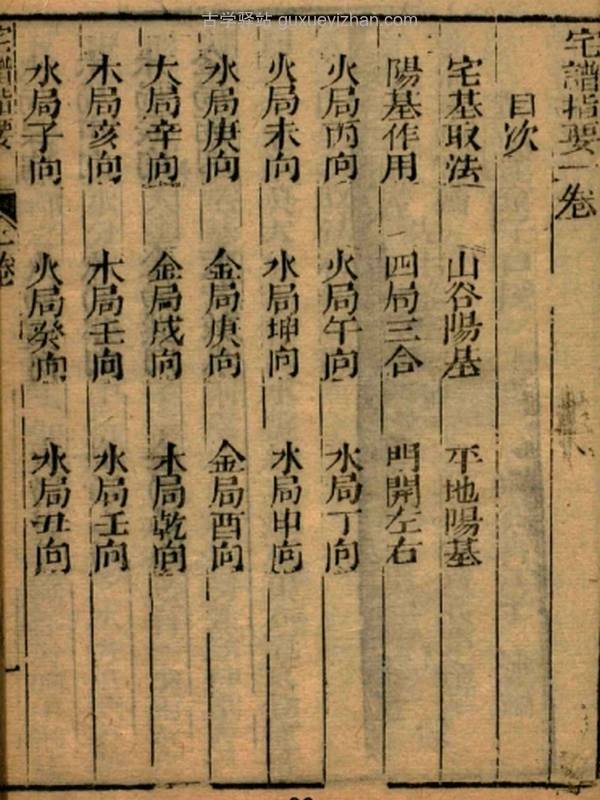 古学驿站 guxuevizhan.com
宅譜指要一卷
目次
宅基取法 山谷陽基 平地陽基
陽基作用 四局三合 門開左右
火局丙向 火局午向 水局丁向
火局未向 水局坤向 水局申向
水局庚向 金局庚向 金局酉向
大局辛向 金局戌向 木局乾向
木局亥向 木局壬向 水局壬向
水局子向 火局癸向 水局丑向
宅譜指要 一卷